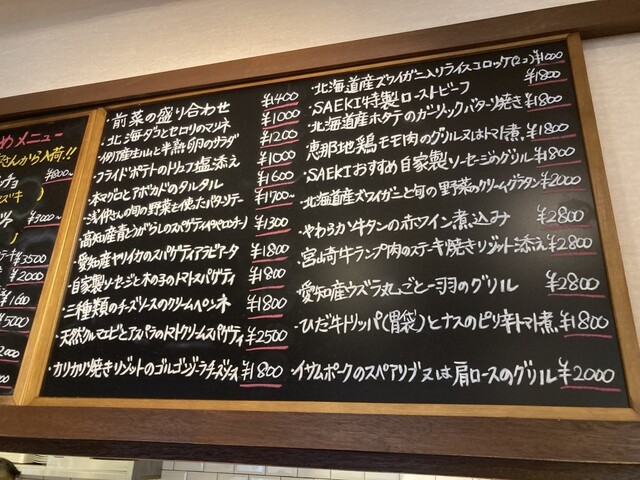 めメニュー
さんから入荷!!
¥3000~
¥3500
¥2000
¥1600
¥5000
2000
・前菜の盛り合わせ ¥1400
・北海ダコとセロリのマリネ ¥1000
・イタリア産生ハムと半熟卵のサラダ ¥1200
・フライドポテトのトリュフ塩添え ¥1000
・本マグロとアボカドのタルタル ¥1600
・浅井さんの旬の野菜を使ったバターソテー ¥1700~
・高知産青とうがらしのスパゲティ ¥1300
・愛知産ヤリイカのスパゲティアラビアータ ¥1800
・自家製ソーセージと木の子のトマトスパゲティ ¥1800
・三種類のチーズソースのクリームペンネ ¥1800
・天然クルマエビとアスパラのトマトクリームスパゲティ ¥2500
・カリカリ焼きリゾットのゴルゴンゾーラチーズソース ¥1800
・北海道産ズワイガニ入りライスコロッケ(2コ) ¥1000
・SAEKI特製ローストビーフ ¥1800
・北海道産ホタテのガーリックバター焼き ¥1800
・恵那地鶏モモ肉のグリル又はトマト煮 ¥1800
・SAEKIおすすめ自家製ソーセージのグリル ¥1800
・北海道産ズワイガニと旬の野菜のクリームグラタン ¥2000
・やわらか牛タンの赤ワイン煮込み ¥2800
・宮崎牛ランプ肉のステーキ焼きリゾット添え ¥2800
・愛知産ウズラ丸ごと一羽のグリル ¥2800
・ひだ牛トリッパ(胃袋)とナスのピリ辛トマト煮 ¥1800
・イザムポークのスペアリブ又は肩ロースのグリル ¥2000